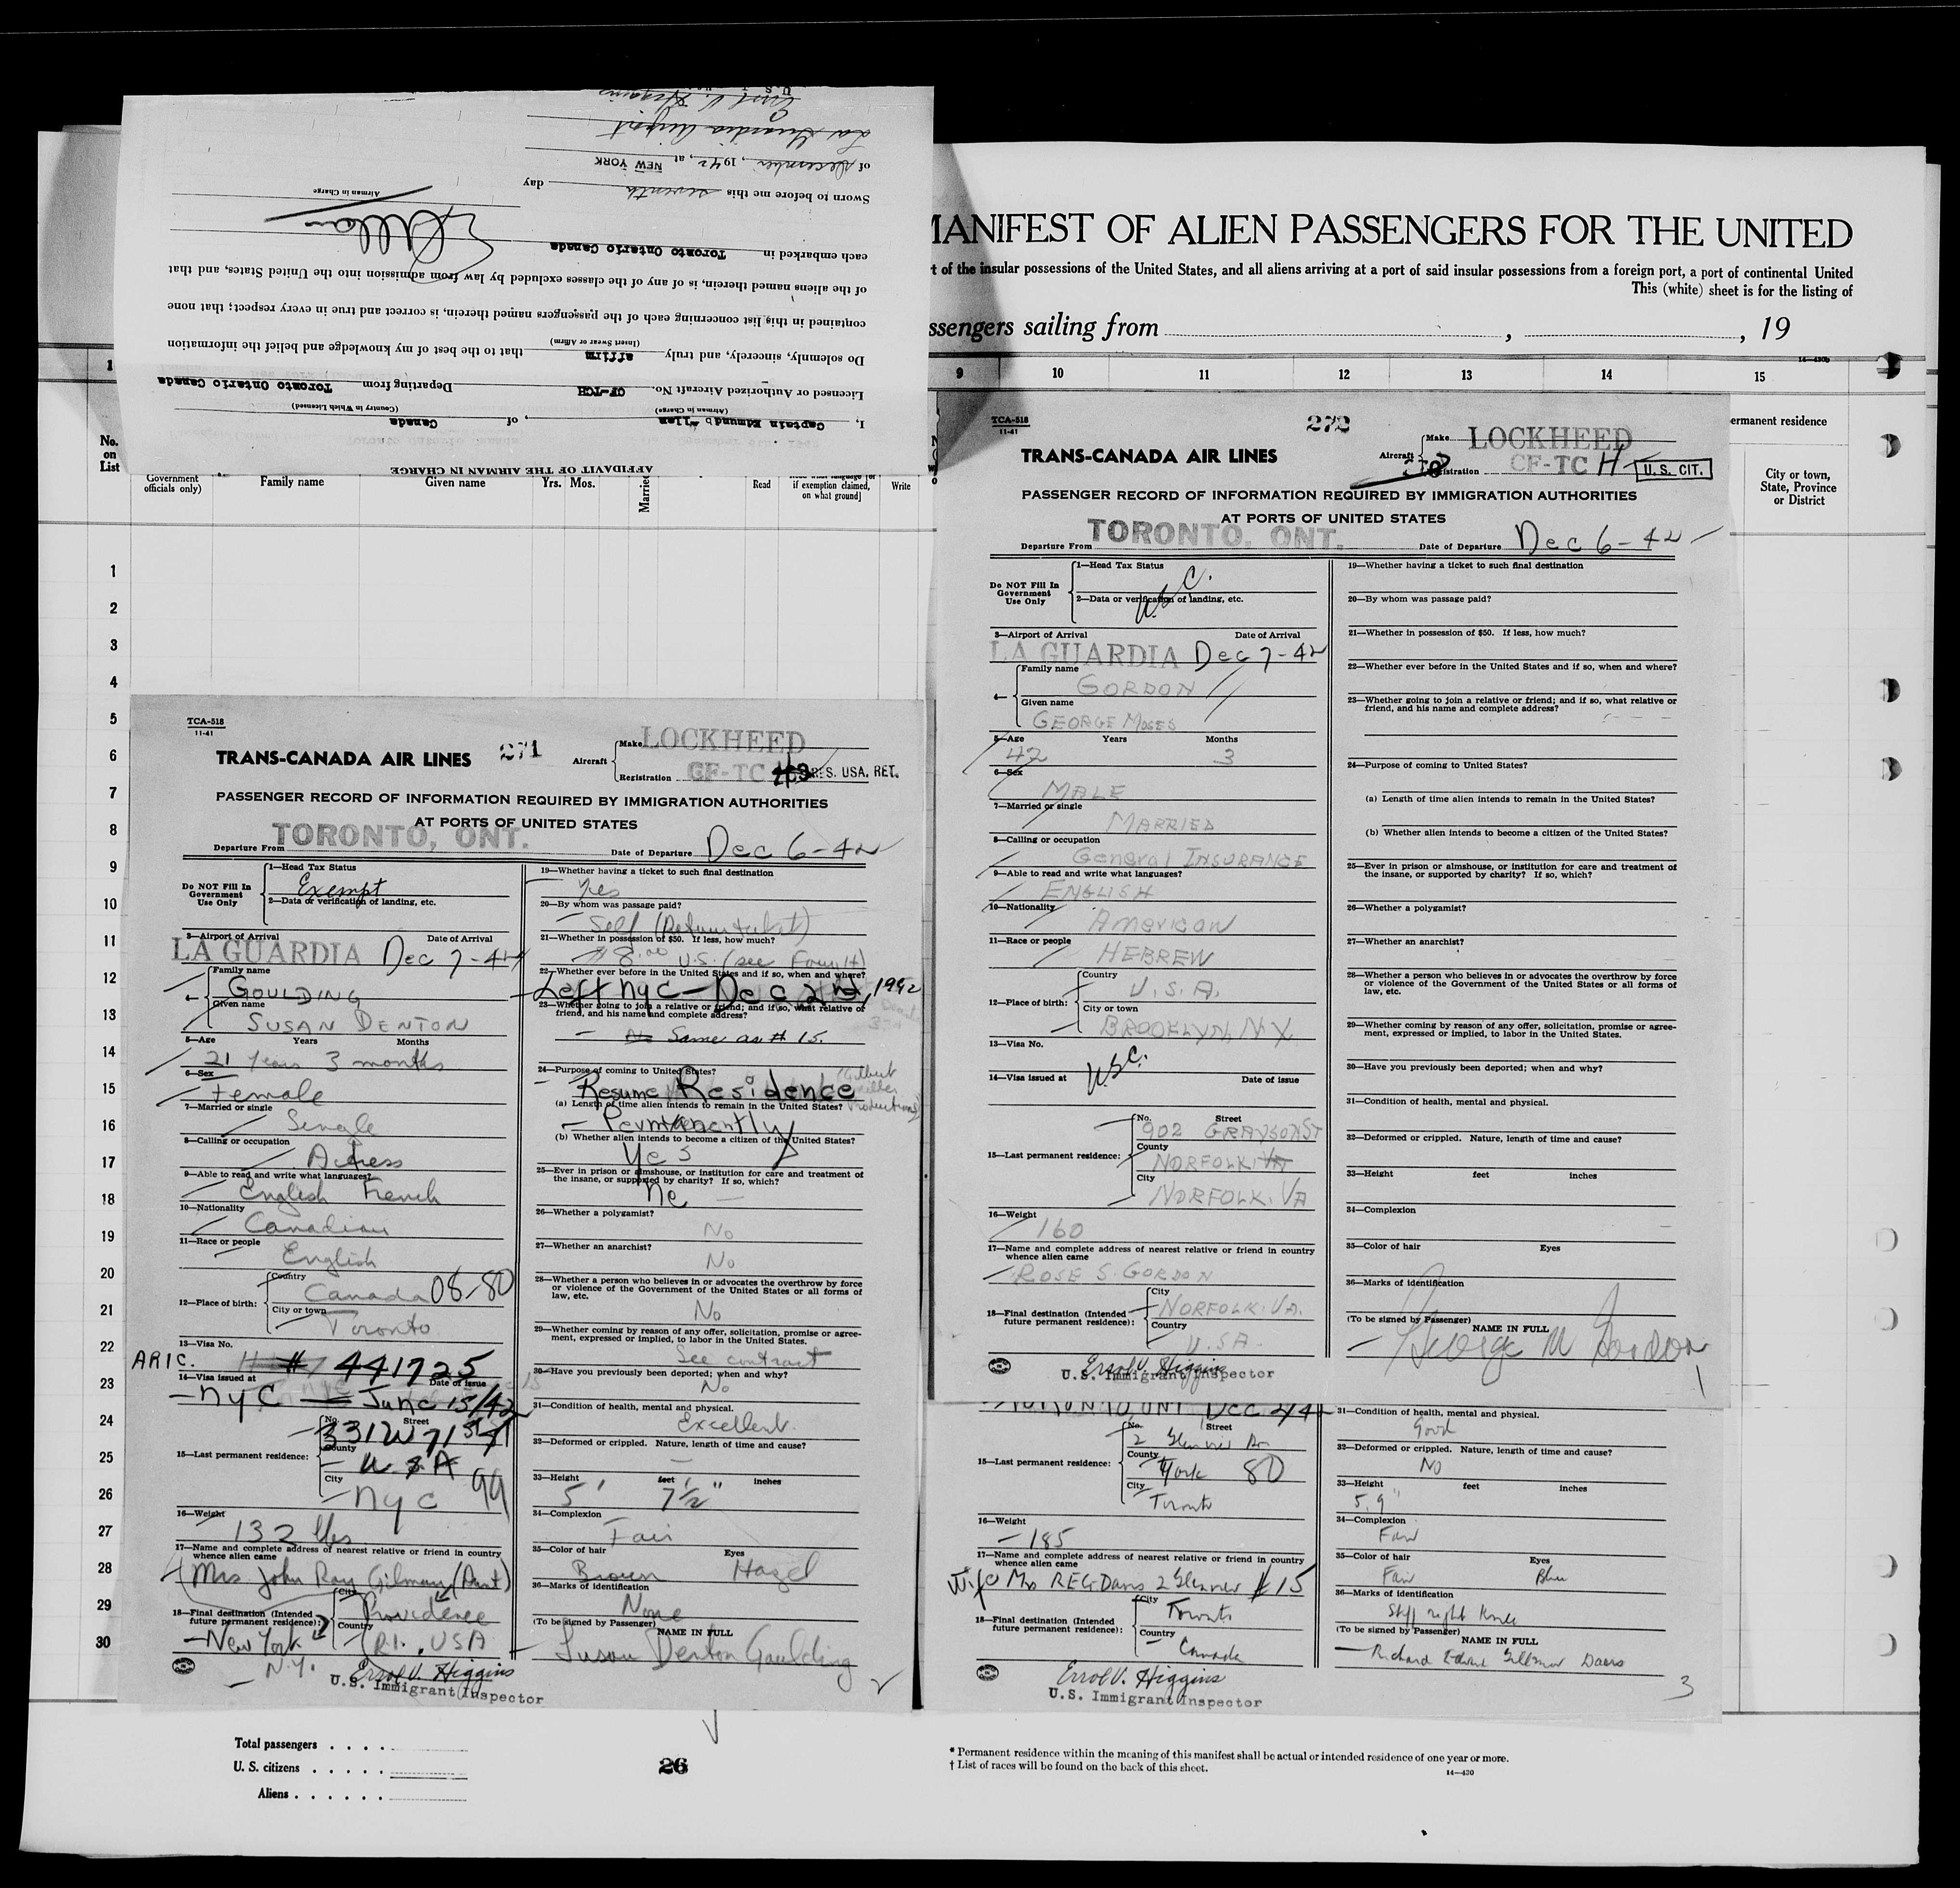 AFFIDAVIT OF THE AIRMAN IN CHARGE
I, Captain Edmund Allan, of Canada
(Airman in Charge) (Country in Which Licensed)
Licensed or Authorized Aircraft No. CF-TCH Departing from Toronto Ontario Canada
Do solemnly, sincerely, and truly affirm that to the best of my knowledge and belief the information
(Insert Swear or Affirm)
contained in this list concerning each of the passengers named therein, is correct and true in every respect; that none
of the aliens named therein, is of any of the classes excluded by law from admission into the United States, and that
each embarked in Toronto Ontario Canada
Airman in Charge
Sworn to before me this seventh day
of December, 1942, at NEW YORK
La Guardia Airport
Errol V. Higgins
U.S.
MANIFEST OF ALIEN PASSENGERS FOR THE UNITED
of the insular possessions of the United States, and all aliens arriving at a port of said insular possessions from a foreign port, a port of continental United
This (white) sheet is for the listing of
ssengers sailing from , , 19
14—430b
1 9 10 11 12 13 14 15
No. on List
Government officials only)
Family name Given name Yrs. Mos. Married Read if exemption claimed, on what ground] Write
ermanent residence
City or town, State, Province or District
1
2
3
4
5
6
7
8
9
10
11
12
13
14
15
16
17
18
19
20
21
22
23
24
25
26
27
28
29
30
TCA-518
11-41
TRANS-CANADA AIR LINES 271 Aircraft Make LOCKHEED
Registration CF-TC RES. USA. RET.
PASSENGER RECORD OF INFORMATION REQUIRED BY IMMIGRATION AUTHORITIES
AT PORTS OF UNITED STATES
Departure From TORONTO, ONT. Date of Departure Dec 6-42
Do NOT Fill In Government Use Only
1—Head Tax Status
Exempt
2—Data or verification of landing, etc.
3—Airport of Arrival Date of Arrival
LA GUARDIA Dec 7-42
4— Family name
GOULDING
Given name
SUSAN DENTON
5—Age Years Months
21 years 3 months
6—Sex
Female
7—Married or single
Single
8—Calling or occupation
Actress
9—Able to read and write what languages?
English French
10—Nationality
Canadian
11—Race or people
English
12—Place of birth:
Country
Canada 08-80
City or town
Toronto
13—Visa No.
ARIC. # 441725
14—Visa issued at Date of Issue
NYC — June 15/42
15—Last permanent residence:
No. Street
331 W 71 St
County
U.S.A
City
NYC 99
16—Weight
132 lbs
17—Name and complete address of nearest relative or friend in country whence alien came
Mrs. John Ray Gilman (Aunt)
18—Final destination (Intended future permanent residence):
City
Providence
Country
R.I., USA
New York
N.Y.
Errol V. Higgins
U.S. Immigrant Inspector
19—Whether having a ticket to such final destination
Yes
20—By whom was passage paid?
Self (Return ticket)
21—Whether in possession of $50. If less, how much?
$8.00 U.S.
22—Whether ever before in the United States and if so, when and where?
Left NYC—Dec 2nd, 1942
23—Whether going to join a relative or friend; and if so, what relative or friend, and his name and complete address?
No Same as # 15.
24—Purpose of coming to United States?
Resume Residence
Gilbert Miller Productions
(a) Length of time alien intends to remain in the United States?
Permanently
(b) Whether alien intends to become a citizen of the United States?
Yes
25—Ever in prison or almshouse, or institution for care and treatment of the insane, or supported by charity? If so, which?
No
26—Whether a polygamist?
No
27—Whether an anarchist?
No
28—Whether a person who believes in or advocates the overthrow by force or violence of the Government of the United States or all forms of law, etc.
No
29—Whether coming by reason of any offer, solicitation, promise or agreement, expressed or implied, to labor in the United States.
See contract
30—Have you previously been deported; when and why?
No
31—Condition of health, mental and physical.
Excellent.
32—Deformed or crippled. Nature, length of time and cause?
—
33—Height feet inches
5' 7½"
34—Complexion
Fair
35—Color of hair Eyes
Brown Hazel
36—Marks of identification
None
(To be signed by Passenger)
NAME IN FULL
Susan Denton Goulding
2
TCA-518
11-41
272
TRANS-CANADA AIR LINES Aircraft Make LOCKHEED
Registration CF-TC H U.S. CIT.
PASSENGER RECORD OF INFORMATION REQUIRED BY IMMIGRATION AUTHORITIES
AT PORTS OF UNITED STATES
Departure From TORONTO, ONT. Date of Departure Dec 6-42
Do NOT Fill In Government Use Only
1—Head Tax Status
U.S.C.
2—Data or verification of landing, etc.
3—Airport of Arrival Date of Arrival
LA GUARDIA Dec 7-42
4— Family name
GORDON
Given name
GEORGE MOSES
5—Age Years Months
42 3
6—Sex
MALE
7—Married or single
MARRIED
8—Calling or occupation
General INSURANCE
9—Able to read and write what languages?
ENGLISH
10—Nationality
American
11—Race or people
HEBREW
12—Place of birth:
Country
U.S.A.
City or town
BROOKLYN, N.Y.
13—Visa No.
USC.
14—Visa issued at Date of issue
15—Last permanent residence:
No. Street
902 GRAYSON ST
County
NORFOLK VA
City
NORFOLK. VA
16—Weight
160
17—Name and complete address of nearest relative or friend in country whence alien came
ROSE S. GORDON
18—Final destination (Intended future permanent residence):
City
NORFOLK. VA.
Country
U.S.A.
Errol V. Higgins
U.S. Immigrant Inspector
19—Whether having a ticket to such final destination
20—By whom was passage paid?
21—Whether in possession of $50. If less, how much?
22—Whether ever before in the United States and if so, when and where?
23—Whether going to join a relative or friend; and if so, what relative or friend, and his name and complete address?
24—Purpose of coming to United States?
(a) Length of time alien intends to remain in the United States?
(b) Whether alien intends to become a citizen of the United States?
25—Ever in prison or almshouse, or institution for care and treatment of the insane, or supported by charity? If so, which?
26—Whether a polygamist?
27—Whether an anarchist?
28—Whether a person who believes in or advocates the overthrow by force or violence of the Government of the United States or all forms of law, etc.
29—Whether coming by reason of any offer, solicitation, promise or agreement, expressed or implied, to labor in the United States.
30—Have you previously been deported; when and why?
31—Condition of health, mental and physical.
32—Deformed or crippled. Nature, length of time and cause?
33—Height feet inches
34—Complexion
35—Color of hair Eyes
36—Marks of identification
(To be signed by Passenger)
NAME IN FULL
George M Gordon
1
TORONTO ONT Dec 4/42
15—Last permanent residence:
No. Street
2
County
York 80
City
Toronto
16—Weight
185
17—Name and complete address of nearest relative or friend in country whence alien came
Wife Mrs R E G Davis 2 #15
18—Final destination (Intended future permanent residence):
City
Toronto
Country
Canada
Errol V. Higgins
U.S. Immigrant Inspector
31—Condition of health, mental and physical.
Good
32—Deformed or crippled. Nature, length of time and cause?
No
33—Height feet inches
5.9"
34—Complexion
Fair
35—Color of hair Eyes
Fair Blue
36—Marks of identification
Stiff right Knee
(To be signed by Passenger)
NAME IN FULL
Richard Edward Davis
3
Total passengers . . . .
U. S. citizens . . . . .
Aliens . . . . . .
26
* Permanent residence within the meaning of this manifest shall be actual or intended residence of one year or more.
† List of races will be found on the back of this sheet.
14—430